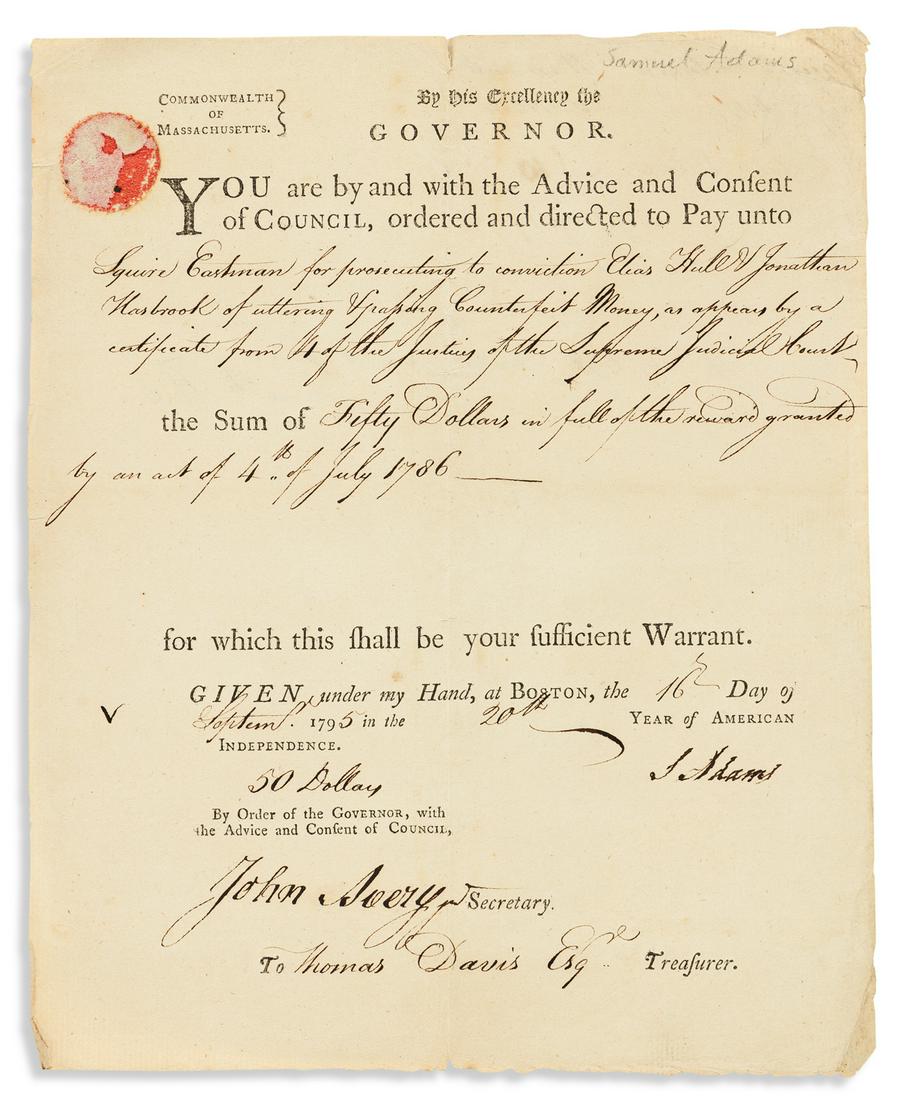 Samuel Adams
COMMONWEALTH
OF
MASSACHUSETTS.
By His Excellency the
GOVERNOR.
YOU are by and with the Advice and Conſent
of COUNCIL, ordered and directed to Pay unto
Squire Eastman for prosecuting to conviction Elias Hull & Jonathan
Hasbrook of uttering & paſsing Counterfeit Money, as appears by a
certificate from 4 of the Justices of the Supreme Judicial Court
the Sum of Fifty Dollars in full of the reward granted
by an act of 4th of July 1786
for which this ſhall be your ſufficient Warrant.
GIVEN under my Hand, at BOSTON, the 16th Day of
Septemr. 1795 in the 20th YEAR of AMERICAN
INDEPENDENCE.
S Adams
50 Dollars
By Order of the GOVERNOR, with
the Advice and Conſent of COUNCIL,
John Avery jr Secretary.
To Thomas Davis Esqr. Treaſurer.